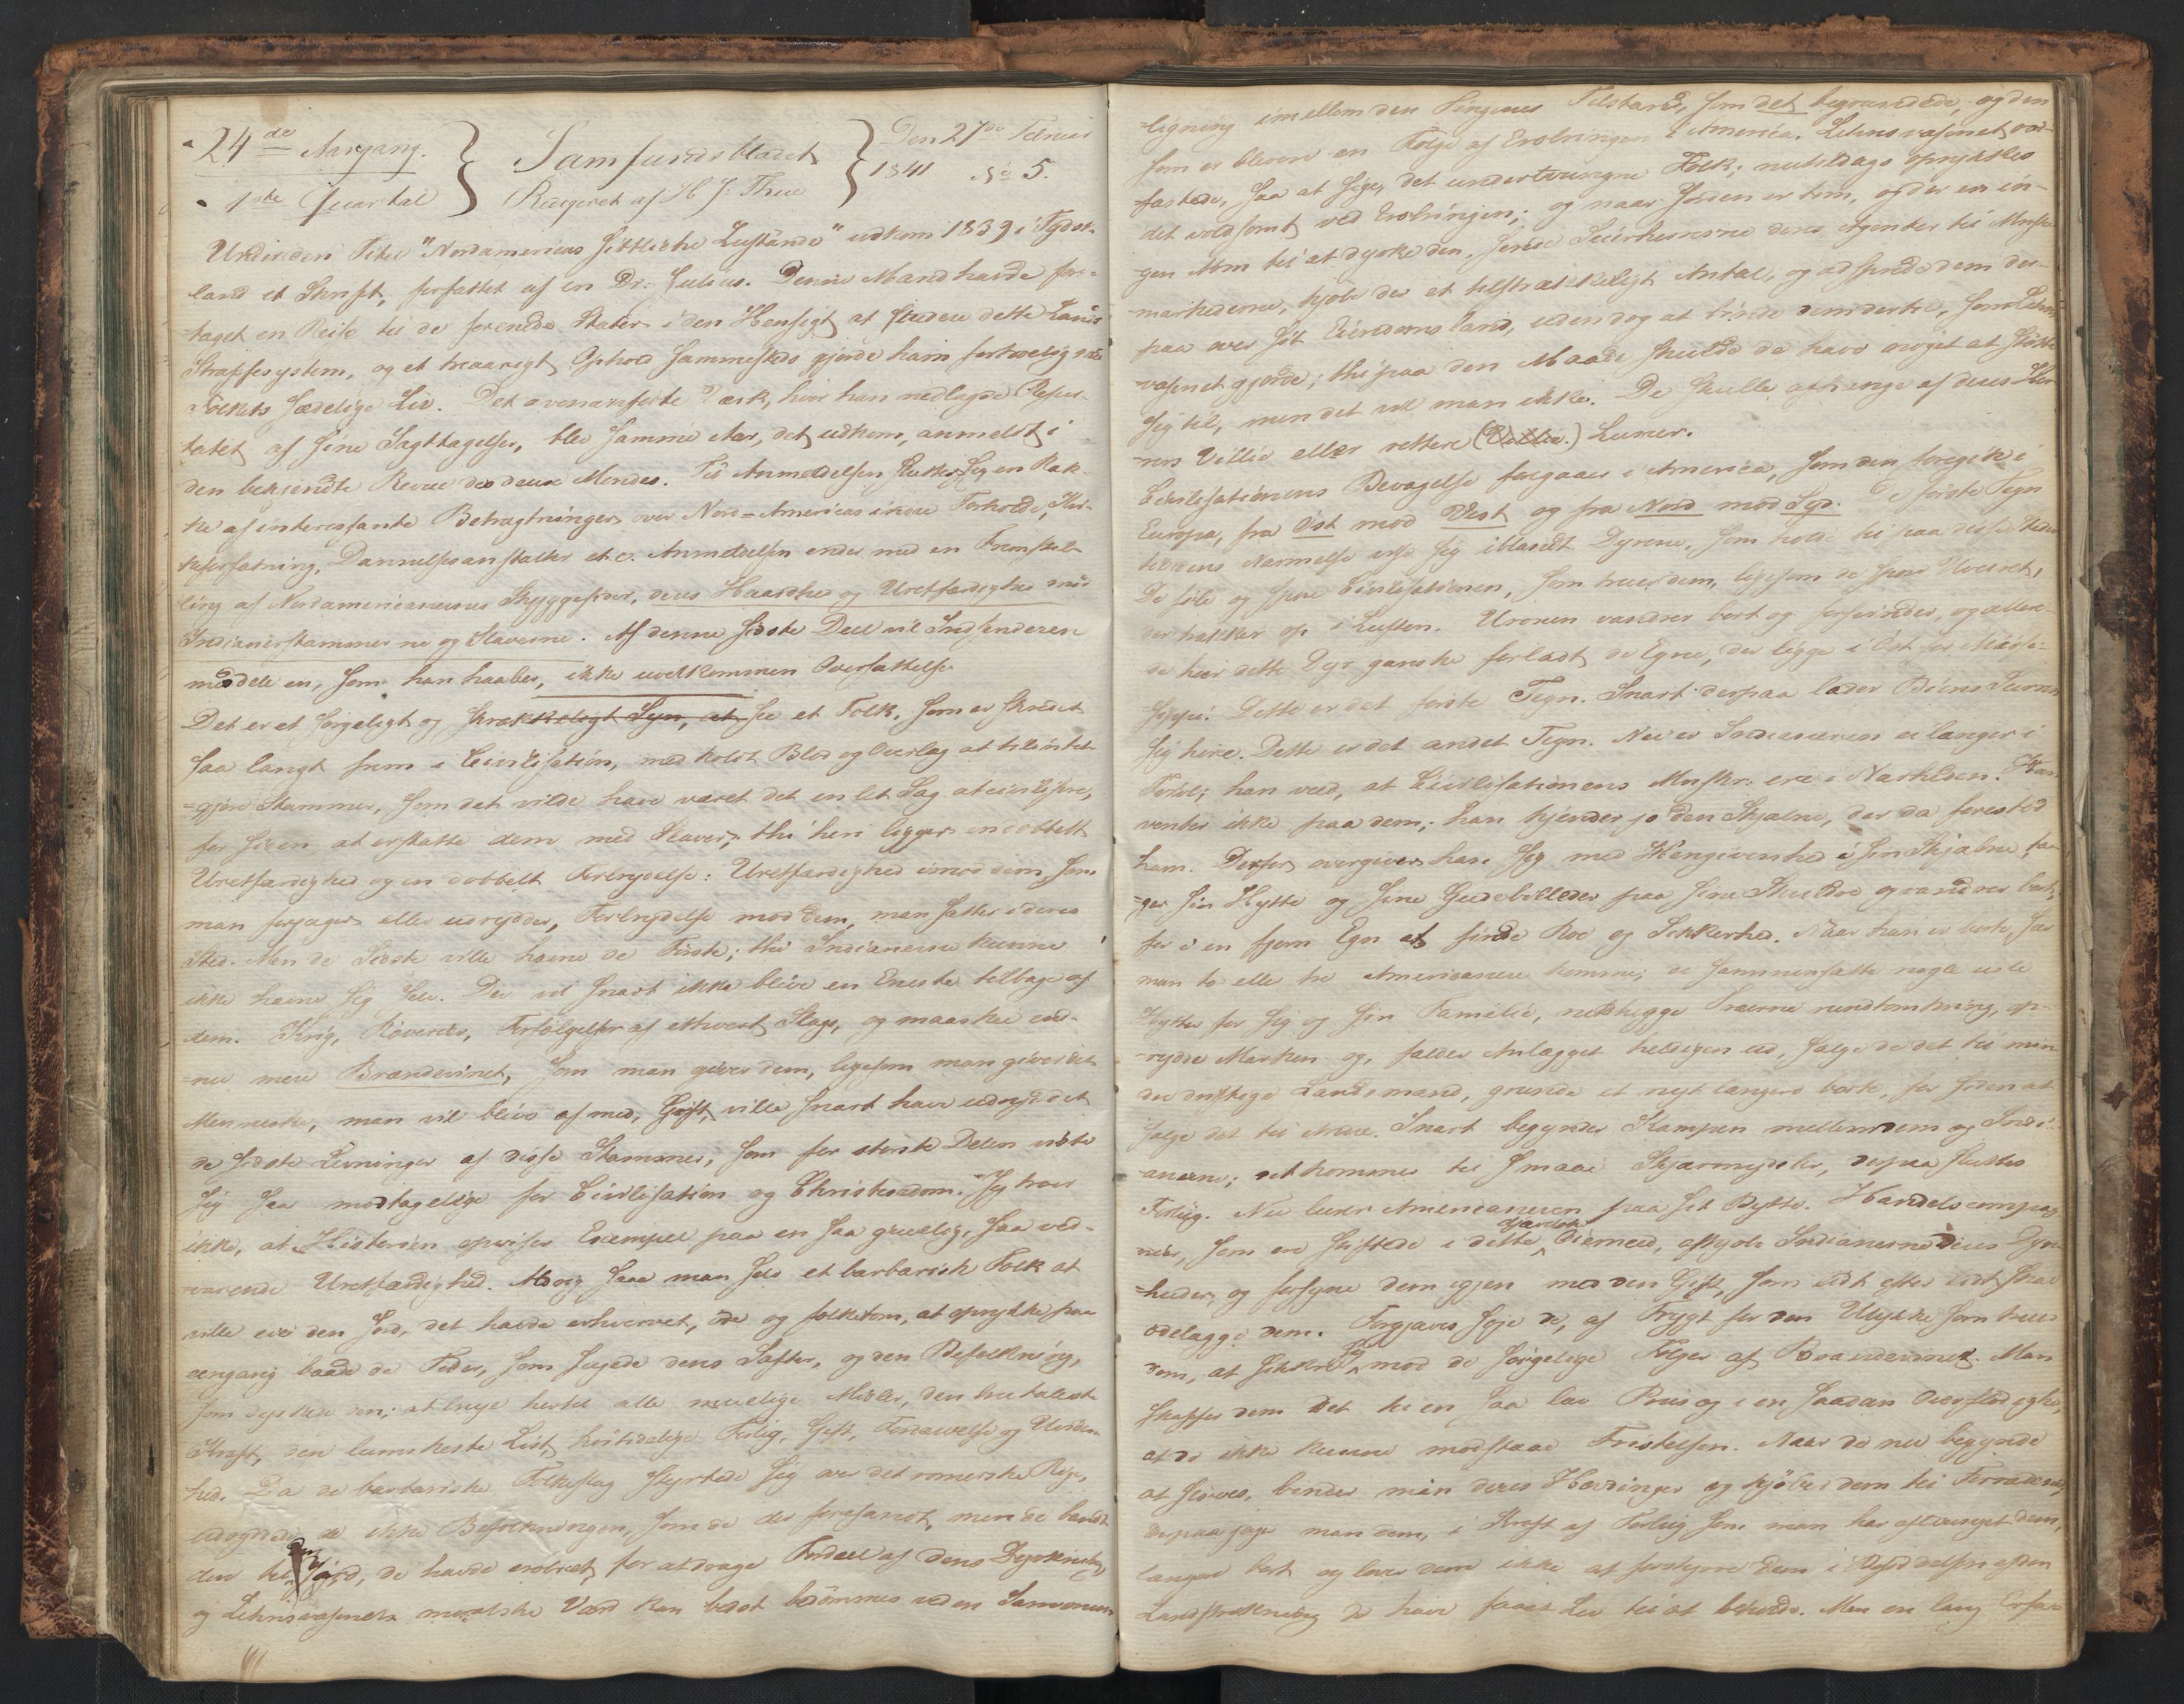 24de Aargang.
1ste Quartal
Samfundsbladet
Redigeret af H J. Thue
Den 27de Februar
1841 No 5.
Under den Titel "Nordamericas sittliche Zustände" udkom 1839 i Tydsk-
land et Skrift, forfattet af en Dr. Julius. Denne Mand havde fore-
taget en Reise til de forenede Stater i den Hensigt at studere dette Lands
Straffesystem, og et treaarigt Ophold sammesteds gjorde ham fortrolig med
Folkets sædelige Liv. Det ovenanførte Værk, hvor han nedlagde Resul-
tatet af sine Iagttagelser, blev samme Aar, det udkom, anmeldt i
den bekjendte Revue des deux Mondes. Til Anmeldelsen slutter sig en Ræk-
ke af interessante Betragtninger over Nord-Americas indre Forholde, Kir-
keforfatning, Dannelsesanstalter etc. Anmeldelsen ender med en Fremstil-
ling af Nordamericanernes Skyggesider, deres Haardhed og Uretfærdighed mod
Indianerstammerne og Slaverne. Af denne sidste Deel vil Indsenderen
meddele en, som han haaber, ikke uvelkommen Oversættelse.
Det er et sørgeligt og skrækkeligt Syn, at see et Folk, som er skredet
saa langt frem i Civilisation, med koldt Blod og Overlæg at tilintet-
gjøre Stammer, som det vilde have været det en let Sag at civilisere,
for siden at erstatte dem med Slaver; thi heri ligger en dobbelt
Uretfærdighed og en dobbelt Forbrydelse: Uretfærdighed imod dem, som
man forjager eller udrydder, Forbrydelse mod dem, man sætter i deres
Sted. Men de Sidste ville hævne de Første; thi Indianerne kunne
ikke hævne sig selv. Der vil snart ikke blive en Eneste tilbage af
dem. Krig, Røverier, Forfølgelser af ethvert Slags, og maaskee end-
nu mere Brændeviinet, som man giver dem, ligesom man giver det
Menneske, man vil blive af med, Gift, ville snart have udryddet
de sidste Levninger af disse Stammer, som for største Delen viste
sig saa modtagelige for Civilisation og Christendom. Jeg troer
ikke, at Historien opviser Exempel paa en saa gruelig, saa ved-
varende Uretfærdighed. Aldrig saae man selv et barbarisk Folk at
ville eie den Jord, det havde erhvervet, øde og folketom, at oprykke paa
eengang baade de Rødder, som sugede dens Safter, og den Befolkning,
som dyrkede den; at bruge hertil alle muelige Midler, den brutaleste
Kraft, den lumskeste List, høitidelige Forlig, Gift, Fordærvelse og Uviden-
hed. Da de barbariske Folkeslag styrtede sig over det romerske Rige,
udryddede de ikke Befolkningen, som de der forefandt, men de bandt
den til den Jord, de havde erobret, for at drage Fordeel af dens Dyrkning,
og Lehnsvæsnets moralske Værd kan bedst bedømmes ved en Sammen-
ligning imellem den Tingenes Tilstand, som det begrundede, og den
som er bleven en Følge af Erobringen i America. Lehnsvæsenet ved-
fæstede, saa at sige, det undertvungne Folk; nutildags oprykkes
det voldsomt ved Erobringen; og naar Jorden er tom, og der er in-
gen Arm til at dyrke den, sende Seierherrerne deres Agenter til Menske-
markederne, kjøbe der et tilstrækkeligt Antal, og adsprede dem der-
paa over sit Eiendoms Land, uden dog at binde dem dertil, som Lehns-
væsenet gjorde; thi paa den Maade skulde de have noget at støtte
sig til, men det vil man ikke. De skulle afhænge af deres Her-
rers Villie eller rettere (Villie.) Luner.
Civilisationens Bevægelse foregaaer i America, som den foregik i
Europa, fra Øst mod Vest og fra Nord mod Syd. De første Tegn
til dens Nærmelse vise sig iblandt Dyrene, som holde til paa disse Steder.
De føle og spore Civilisationen, som truer dem, ligesom de spore Uveiret,
der trækker op i Luften. Uroxen vandrer bort og forsvinder, og allere-
de har dette Dyr ganske forladt de Egne, der ligge i Øst for Missi-
sippi. Dette er det første Tegn. Snart derpaa lader Biens Surren
sig høre. Dette er det andet Tegn. Nu er Indianeren ei længer i
Tvivl; han veed, at Civilisationens Mnskr. ere i Nærheden. Han
venter ikke paa dem; han kjender jo den Skjæbne, der da forestod
ham. Derfor overgiver han sig med Hengivenhed i sin Skjæbne, ta-
ger sin Hytte og sine Gudebilleder paa sine Skuldre og vandrer bort,
for i en fjern Egn at finde Roe og Sikkerhed. Naar han er borte, seer
man to eller tre Americanere komme; de sammensætte nogle usle
Hytter for sig og sin Familie, nedhugge Træerne rundtomkring, op-
rydde Marken og, falder Anlægget heldigen ud, sælge de det til min-
dre driftige Landsmænd, grunde et nyt længere borte, for siden at
sælge det til Andre. Snart begynder Kampen mellem dem og Indi-
anerne; det kommer til smaae Skjærmydsler, derpaa sluttes
Forliig. Nu lurer Americaneren paa sit Bytte. Handelscompag-
nier, som ere stiftede i dette djævelske Øiemed, afkjøbe Indianerne deres Dyre-
huder, og forsyne dem igjen med den Gift, som lidt efter lidt skal
ødelægge dem. Forgjæves søge de, af Frygt for den Ulykke som truer
dem, at sikkre sig mod de sørgelige Følger af Brændeviinet. Man
skaffer dem det til en saa lav Priis og i en saadan Overflødighed,
at de ikke kunne modstaae Fristelsen. Naar de nu begynde
at sløves, binder man deres Høvdinger og kjøber dem til Forrædere,
derpaa jager man dem, i Kraft af Forlig som man har aftvunget dem,
længere bort og lover dem ikke at forstyrre dem i Besiddelsen af den
Landstrækning de have faaet Lov til at beholde. Men en lang Erfa-